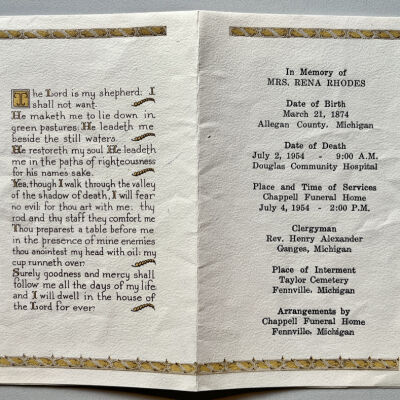 The Lord is my shepherd: I
shall not want.
He maketh me to lie down in
green pastures: He leadeth me
beside the still waters.
He restoreth my soul: He leadeth
me in the paths of righteousness
for his names sake.
Yea, though I walk through the valley
of the shadow of death, I will fear
no evil: for thou art with me: thy
rod and thy staff they comfort me
Thou preparest a table before me
in the presence of mine enemies
thou anointest my head with oil: my
cup runneth over:
Surely goodness and mercy shall
follow me all the days of my life
and I will dwell in the house of
the Lord for ever:
In Memory of
MRS. RENA RHODES
Date of Birth
March 21, 1874
Allegan County, Michigan
Date of Death
July 2, 1954 - 9:00 A.M.
Douglas Community Hospital
Place and Time of Services
Chappell Funeral Home
July 4, 1954 - 2:00 P.M.
Clergyman
Rev. Henry Alexander
Ganges, Michigan
Place of Interment
Taylor Cemetery
Fennville, Michigan
Arrangements by
Chappell Funeral Home
Fennville, Michigan